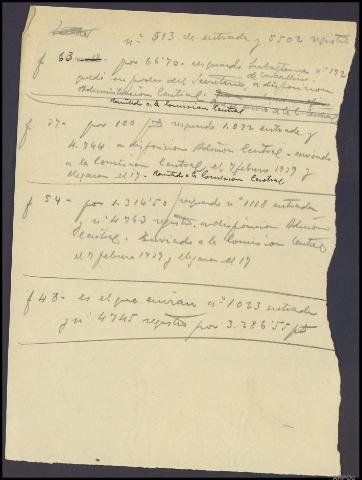 nº 513 de entrada y 5502 registro
f 63 - por 66'70 - resguardo Subalterna nº 172
quedó en poder del Secretario, a disposicion
Administración Central.
Remitido a la Comision Central
f. 37 - por 100 pts resguardo 1.022 entrada y
4.744 a disposicion Admón Central - enviado
a la Comision Central el 7 febrero 1939 y
llegaron el 17 - Remitido a la Comision Central
f 54 - por 1.314'50 resguardo nº 1118 entrada
nº 4763 registro, a disposicion Admón
Central. Enviado a la Comision Central
el 7 febrero 1939 y llegaron el 17
f 48 - es el que envian nº 1023 entrada
y nº 4745 registro por 3.286'55 pts